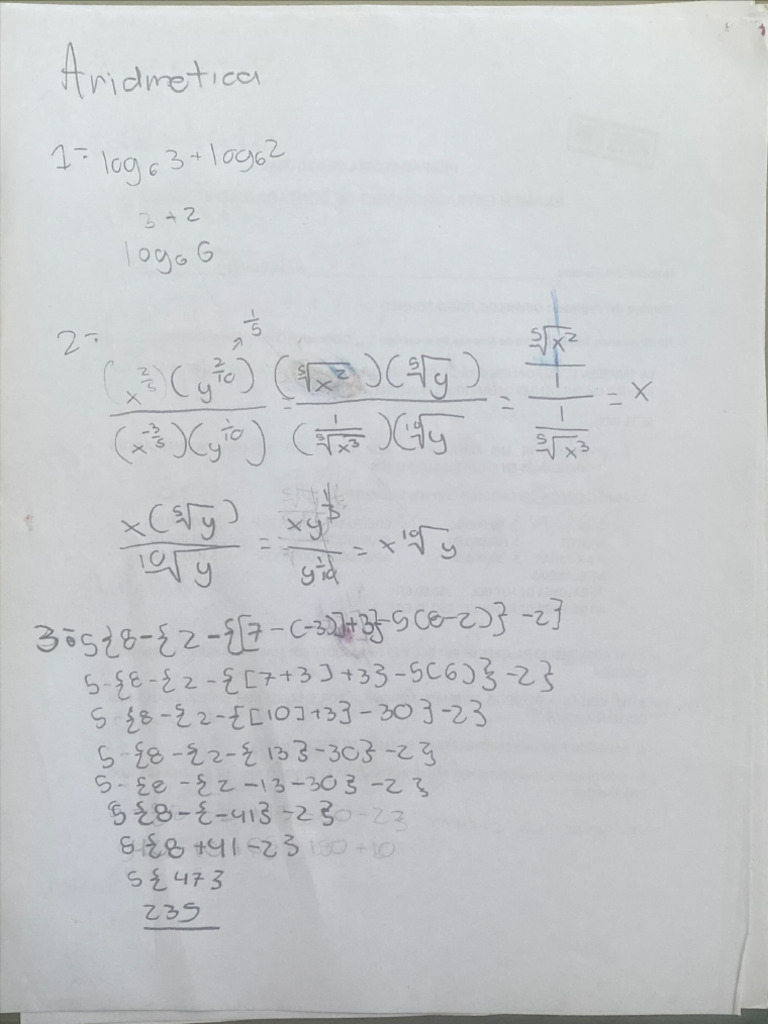 Aridmetica
1= log₆ 3 + log₆2
3 + 2
log₆ 6
2= ((x^(2/5))(y^(2/10)))/((x^(-3/5))(y^(1/10))) → 1/5 = ((⁵√x²)(⁵√y))/((1/⁵√x³)(¹⁰√y) = (⁵√x²/1)/(1/⁵√x³) = x
(x(⁵√y))/(¹⁰√y) = (xy^(1/5))/(y^(1/10)) = x ¹⁰√y
3= 5{8-{2-{[7-(-3)]+3}-5(8-2)}-2}
5-{8-{2-{[7+3]+3}-5(6)}-2}
5-{8-{2-{[10]+3}-30}-2}
5-{8-{2-{13}-30}-2}
5-{8-{2-13-30}-2}
5{8-{-41}-2}
5{8+41-2}
5{47}
235